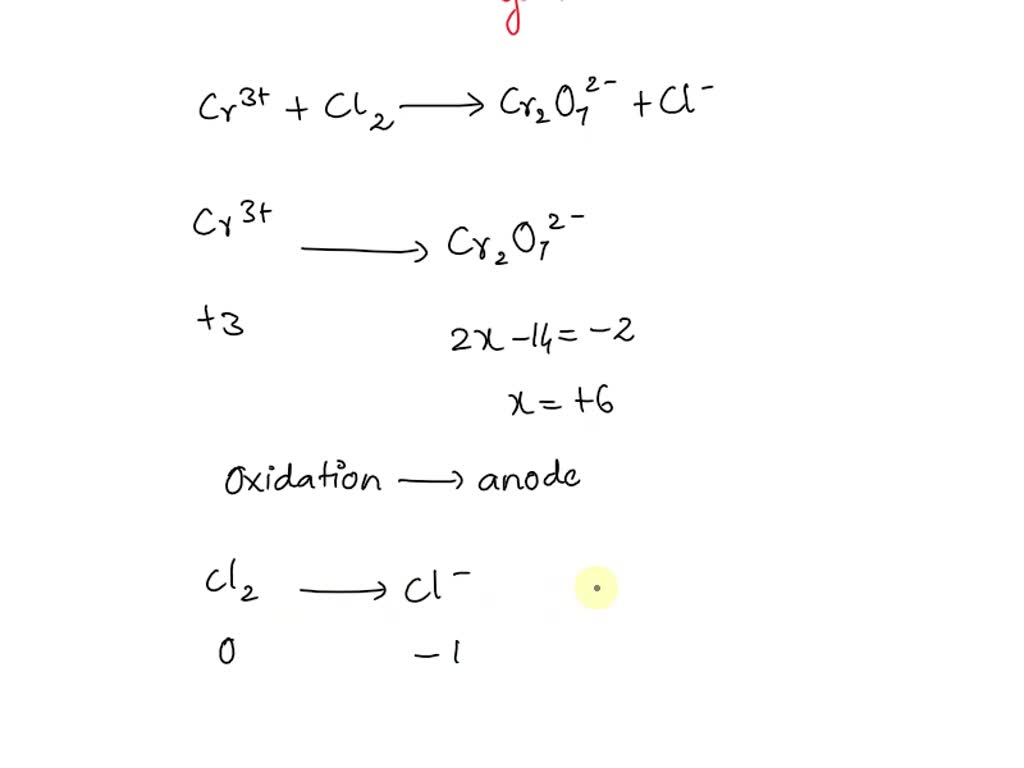 Cr³⁺ + Cl₂ ⟶ Cr₂O₇²⁻ + Cl⁻
Cr³⁺ ⟶ Cr₂O₇²⁻
+3 2x −14 = −2
x = +6
Oxidation ⟶ anode
Cl₂ ⟶ Cl⁻
0 −1